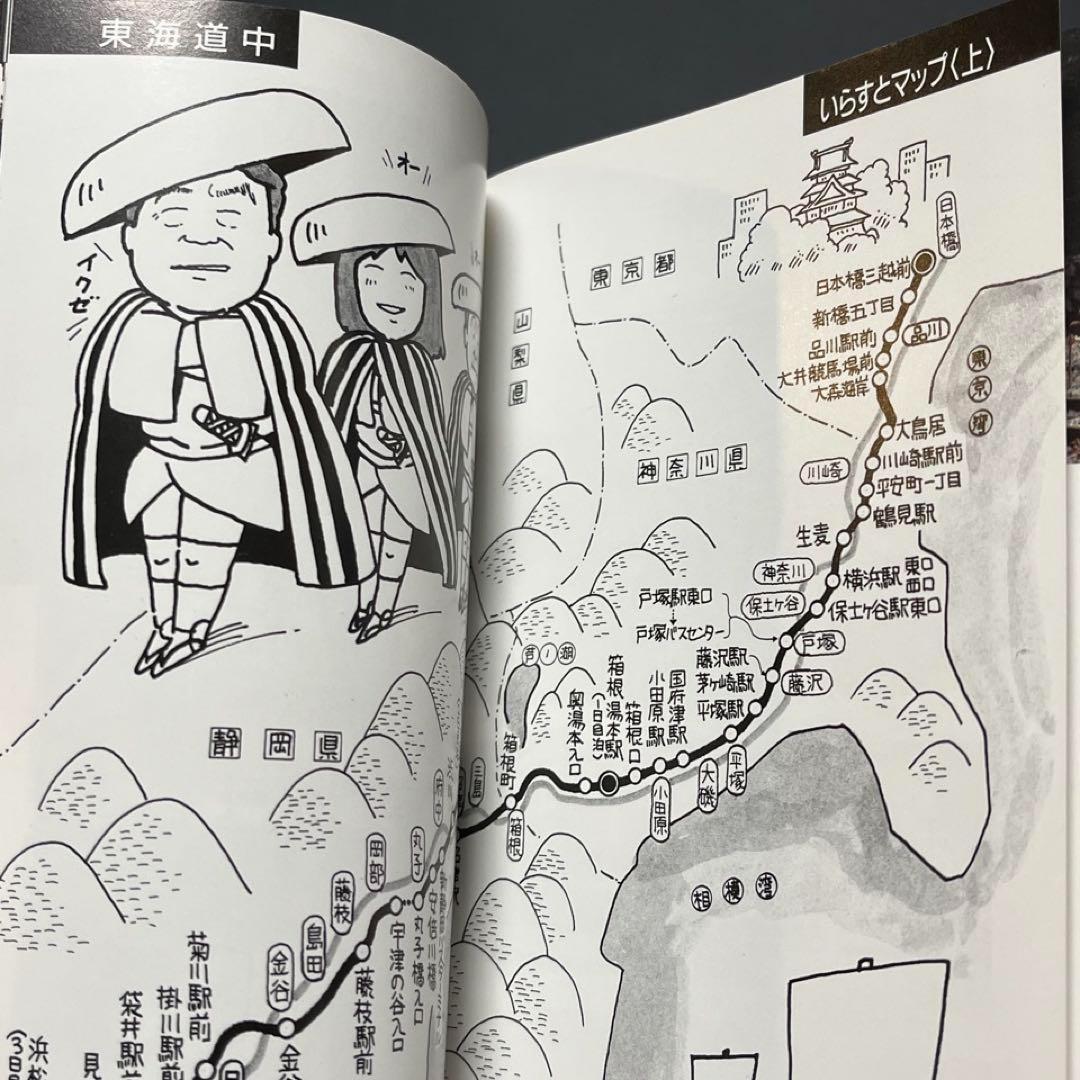 東海道中
いらすとマップ〈上〉
イクゼ
オー
東京都
山梨県
神奈川県
東京湾
日本橋
日本橋三越前
新橋五丁目
品川
品川駅前
大井競馬場前
大森海岸
大鳥居
川崎
川崎駅前
平安町一丁目
鶴見駅
生麦
神奈川
横浜駅東口
西口
保土ヶ谷
保土ヶ谷駅東口
戸塚駅東口
戸塚バスセンター
戸塚
藤沢駅
藤沢
茅ヶ崎駅
平塚駅
平塚
大磯
国府津駅
小田原駅
小田原
箱根口
箱根湯本駅
(1日目泊)
奥湯本入口
芦ノ湖
箱根町
箱根
三島
相模湾
静岡県
府中
丸子
安倍川橋
丸子橋入口
岡部
宇津の谷入口
藤枝
藤枝駅前
島田
金谷
金谷
菊川駅前
掛川駅前
袋井駅前
見
浜松
(3日目